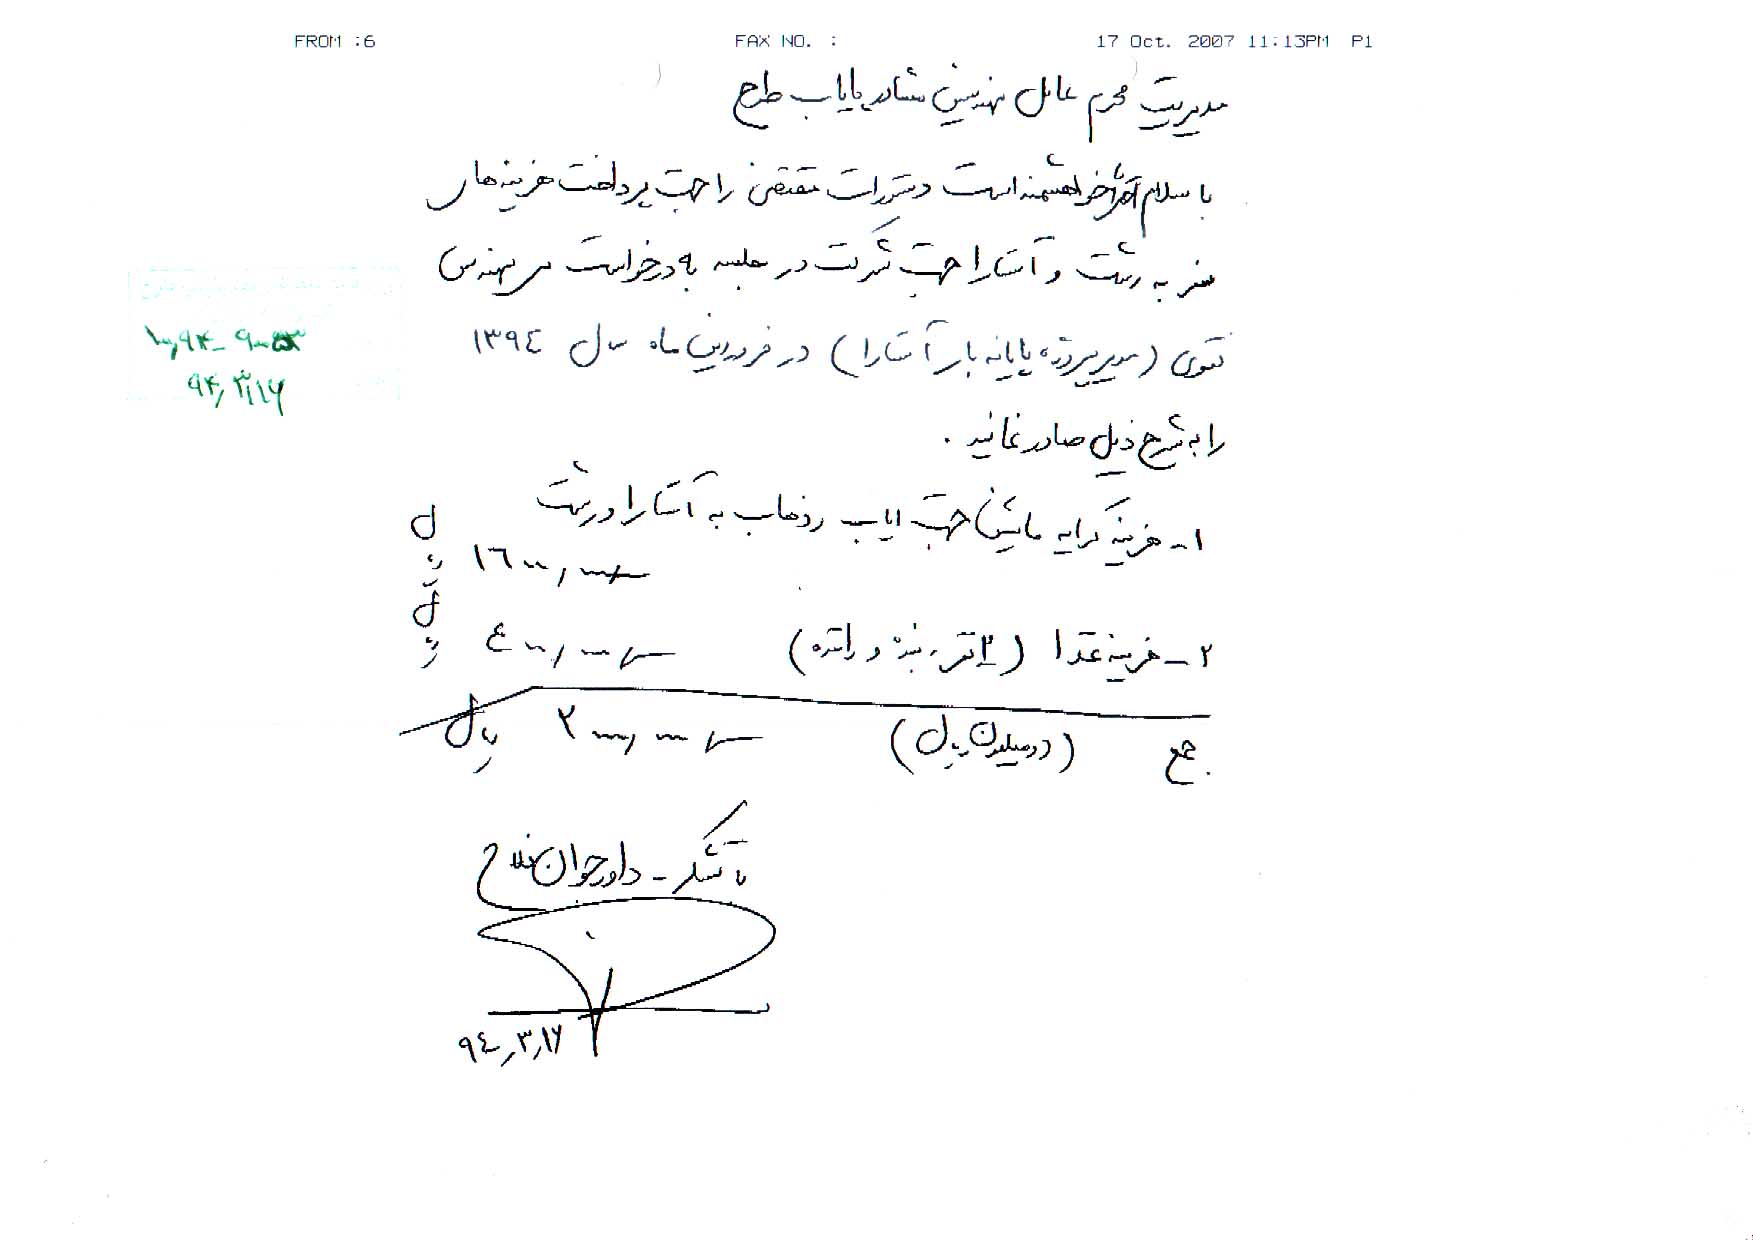 FROM :6 FAX NO. : 17 Oct. 2007 11:13PM P1
مدیریت محترم عامل مهندسین مشاور پایاب طرح
با سلام احتراماً خواهشمند است دستورات مقتضی را جهت پرداخت هزینه های
سفر به رشت و آستارا جهت شرکت در جلسه به درخواست مهندس
تقوی (مدیر پروژه پایانه بار آستارا) در فروردین ماه سال ۱۳۹۴
را به شرح ذیل صادر نمائید .
۱- هزینه کرایه ماشین جهت ایاب و ذهاب به آستارا و رشت
۱۶۰۰,۰۰۰ ریال
۲- هزینه غذا (۲ نفر، بنده و راننده) ۴۰۰,۰۰۰ ریال
جمع (دو میلیون ریال) ۲۰۰۰,۰۰۰ ریال
با تشکر - داور جوان فلاح
۹۴,۳,۱۶
۹۴,۳,۱۶